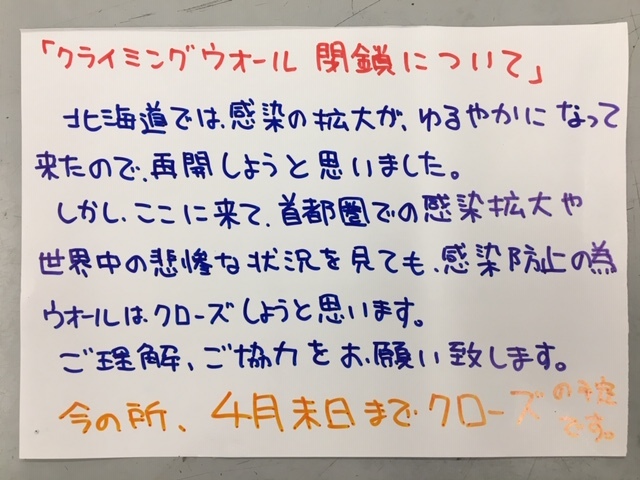 「クライミングウオール 閉鎖について」
北海道では、感染の拡大が、ゆるやかになって
来たので、再開しようと思いました。
しかし、ここに来て、首都圏での感染拡大や
世界中の悲惨な状況を見ても、感染防止の為
ウオールは、クローズしようと思います。
ご理解、ご協力をお願い致します。
今の所、4月末日までクローズの予定です。